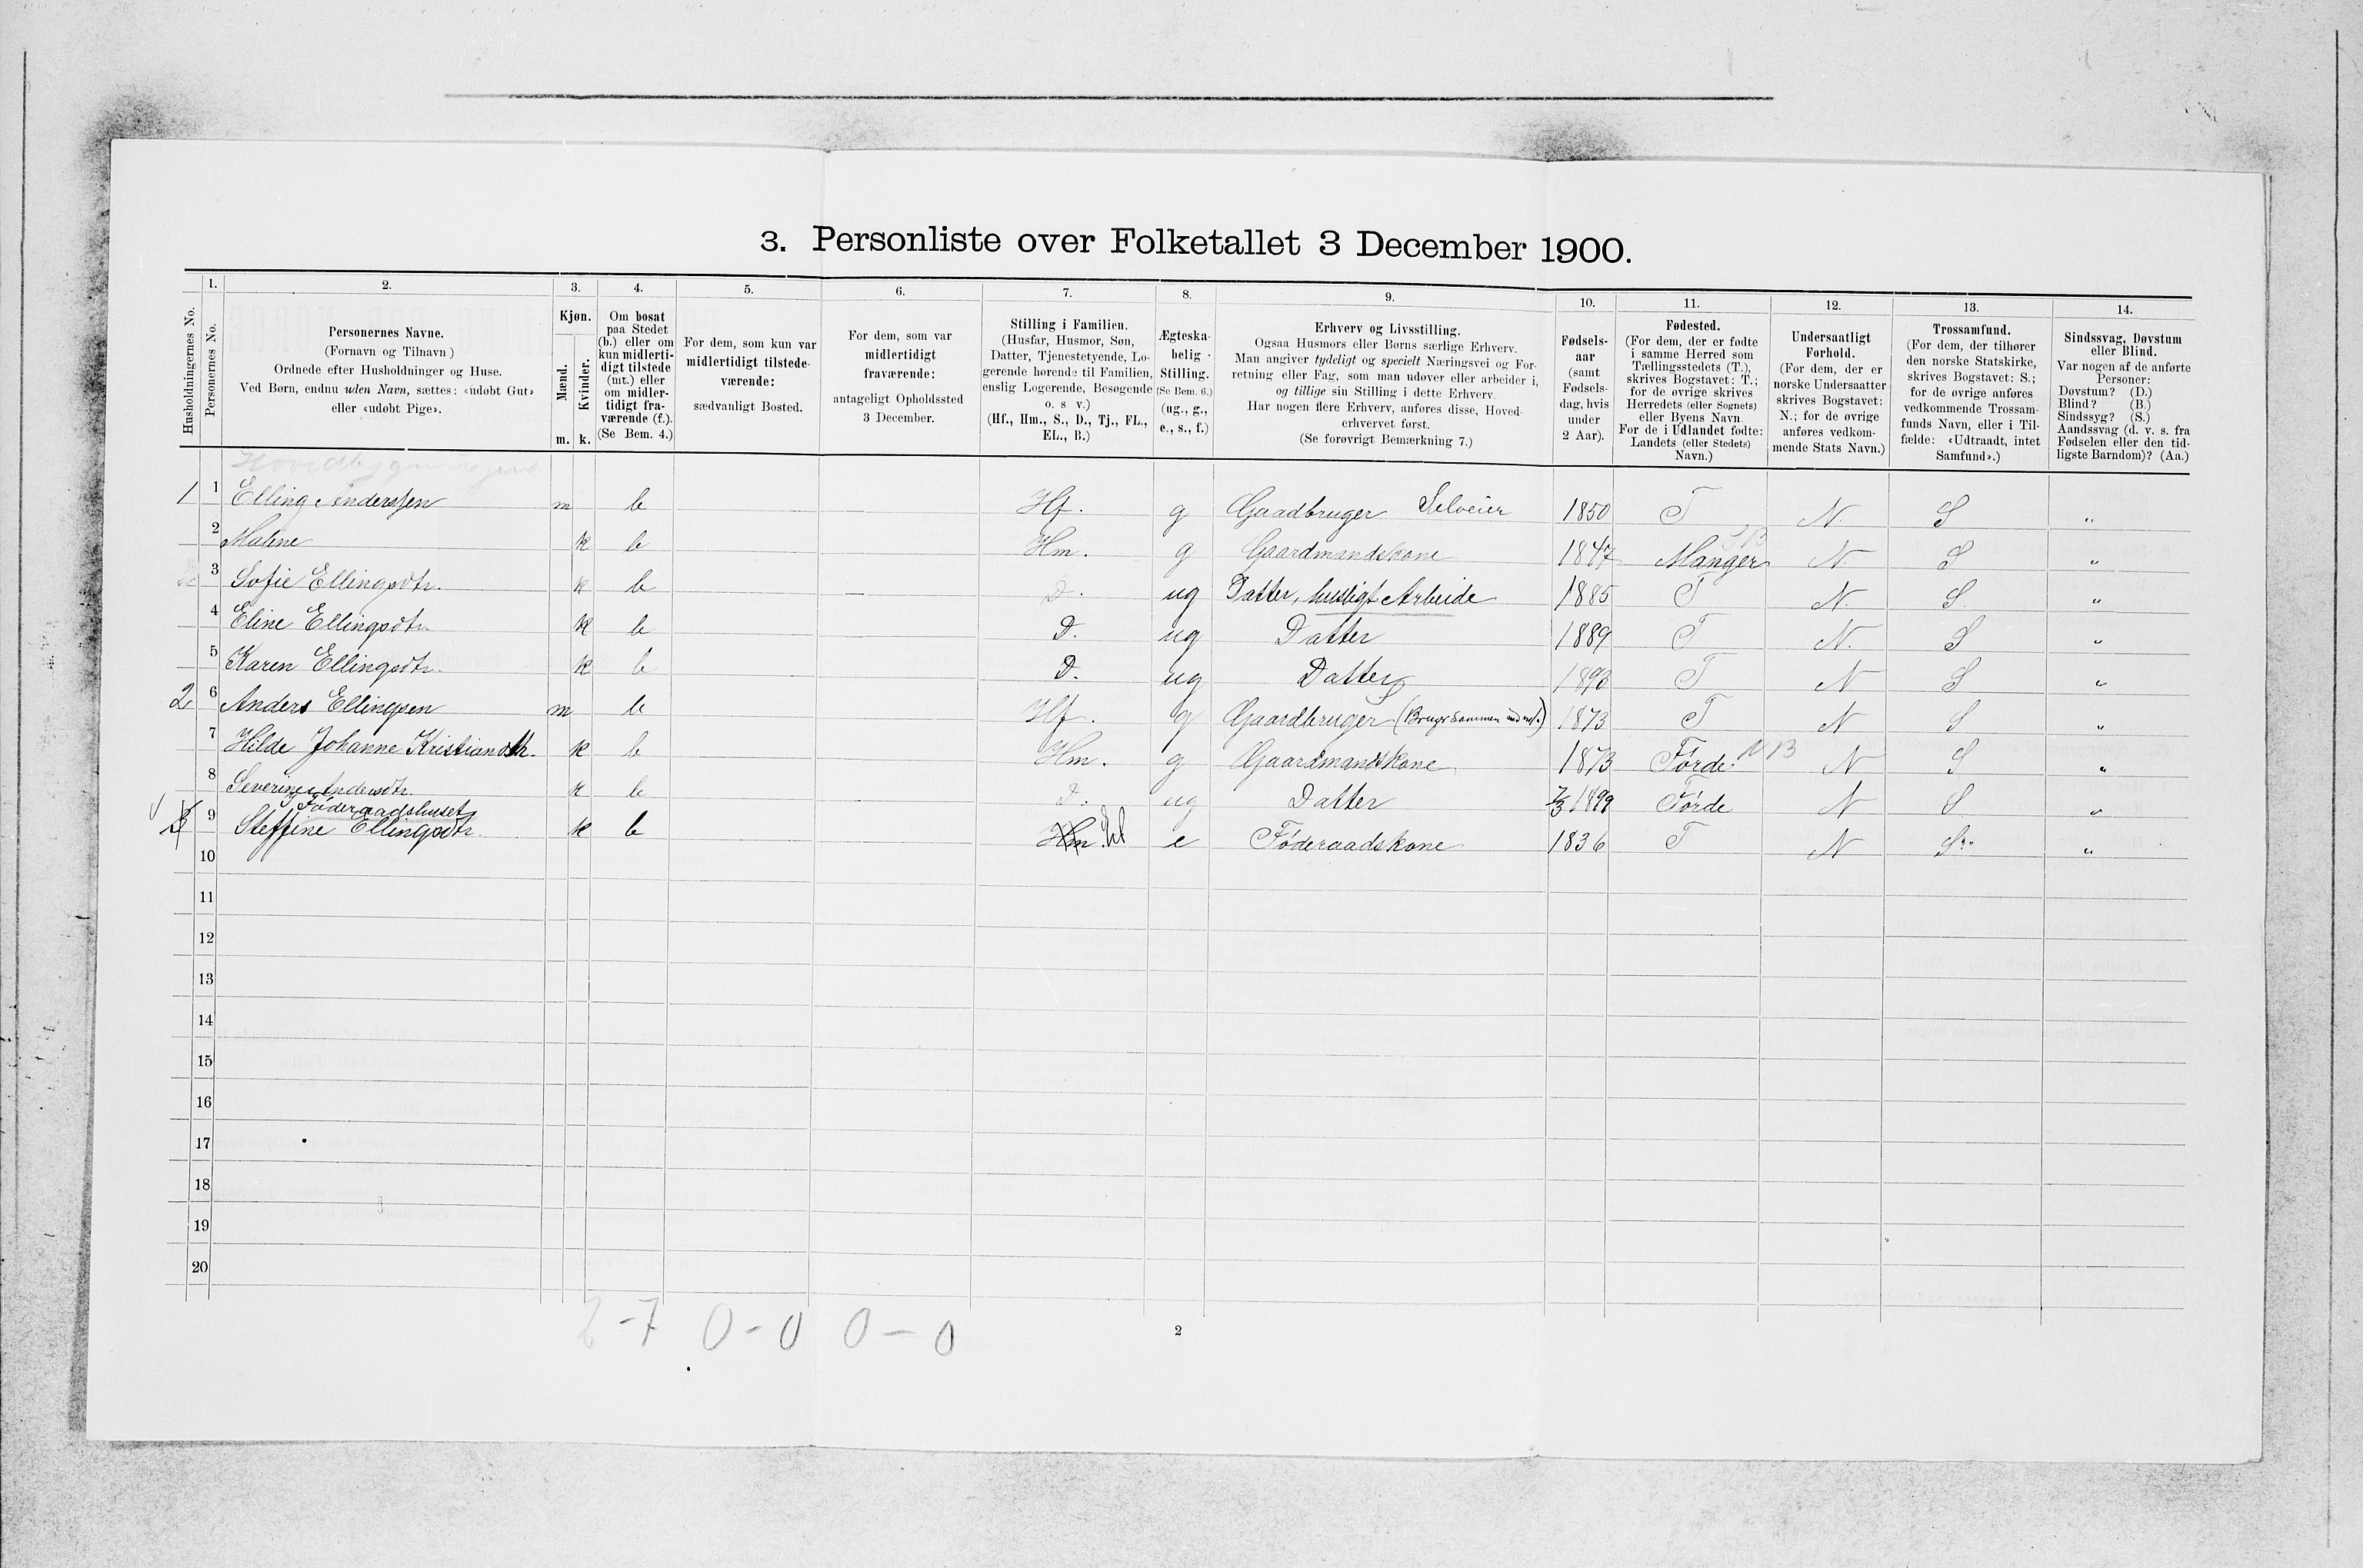 3. Personliste over Folketallet 3 December 1900.
Husholdningernes No.
1.
Personernes No.
2.
Personernes Navne.
(Fornavn og Tilnavn)
Ordnede efter Husholdninger og Huse.
Ved Børn, endnu uden Navn, sættes: «udøbt Gut»
eller «udøbt Pige».
3.
Kjøn.
Mænd.
Kvinder.
m. k.
4.
Om bosat
paa Stedet
(b.) eller om
kun midlerti-
digt tilstede
(mt.) eller
om midler-
tidigt fra-
værende (f.).
(Se Bem. 4.)
5.
For dem, som kun var
midlertidigt tilstede-
værende:
sædvanligt Bosted.
6.
For dem, som var
midlertidigt
fraværende:
antageligt Opholdssted
3 December.
7.
Stilling i Familien.
(Husfar, Husmor, Søn,
Datter, Tjenestetyende, Lo-
gerende hørende til Familien,
enslig Logerende, Besøgende
o. s v.)
(Hf., Hm., S., D., Tj., FL.,
EL., B.)
8.
Ægteska-
belig
Stilling.
(Se Bem. 6.)
(ug., g.,
e., s., f.)
9.
Erhverv og Livsstilling.
Ogsaa Husmors eller Børns særlige Erhverv.
Man angiver tydeligt og specielt Næringsvei og For-
retning eller Fag, som man udøver eller arbeider i,
og tillige sin Stilling i dette Erhverv.
Har nogen flere Erhverv, anføres disse, Hoved-
erhvervet først.
(Se forøvrigt Bemærkning 7.)
10.
Fødsels-
aar
(samt
Fødsels-
dag, hvis
under
2 Aar).
11.
Fødested.
(For dem, der er fødte
i samme Herred som
Tællingsstedets (T.),
skrives Bogstavet: T.;
for de øvrige skrives
Herredets (eller Sognets)
eller Byens Navn.
For de i Udlandet fødte:
Landets (eller Stedets)
Navn.)
12.
Undersaatligt
Forhold.
(For dem, der er
norske Undersaatter
skrives Bogstavet:
N.; for de øvrige
anføres vedkom-
mende Stats Navn.)
13.
Trossamfund.
(For dem, der tilhører
den norske Statskirke,
skrives Bogstavet: S.;
for de øvrige anføres
vedkommende Trossam-
funds Navn, eller i Til-
fælde: «Udtraadt, intet
Samfund».)
14.
Sindssvag, Døvstum
eller Blind.
Var nogen af de anførte
Personer:
Døvstum? (D.)
Blind? (B.)
Sindssyg? (S.)
Aandssvag (d. v. s. fra
Fødselen eller den tid-
ligste Barndom)? (Aa.)
Hovedbygningen
1 1 Elling Anderssen m b Hf. g Gaadbruger Selveier 1850 T N. S "
2 Malene k b Hm. g Gaardmandskone 1847 Manger N. S "
3 Sofie Ellingsdtr. k b D. ug Datter, husligt Arbeide 1885 T N. S. "
4 Eline Ellingsdtr. k b D. ug Datter 1889 T N. S "
5 Karen Ellingsdtr. k b D. ug Datter 1893 T N S "
2 6 Anders Ellingsen m b Hf. g Gaardbruger (Bruger sammen med 1873 T N S "
7 Hilde Johanne Kristiansdtr. k b Hm. g Gaardmandskone 1873 Førde NB N S "
8 Severine Andersdtr. k b D. ug Datter 7/3 1899 Førde N S "
I Føderaadshuset
3 9 Steffine Ellingsdtr. k b Hm. El e Føderaadskone 1836 T N S "
10
11
12
13
14
15
16
17
18
19
20
2-7 0-0 0-0
2